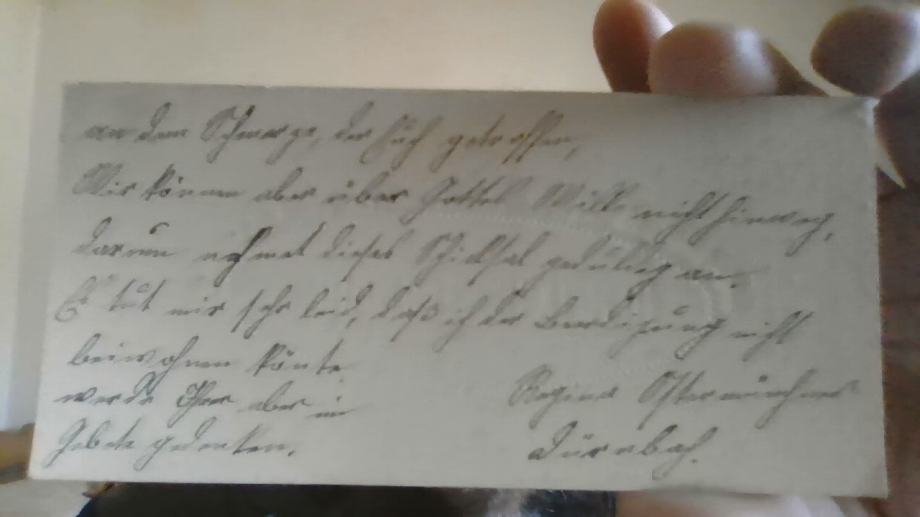 an dem Schmerze, der Euch getroffen,
Wir können aber über Gottes Wille nicht hinweg,
darum nehmet dieses Schicksal geduldig an.
Es tut mir sehr leid, daß ich der Beerdigung nicht
beiwohnen könnte
werde Ihrer aber im
Gebete gedenken.
Regina Ostermünchner
Dürnbach.